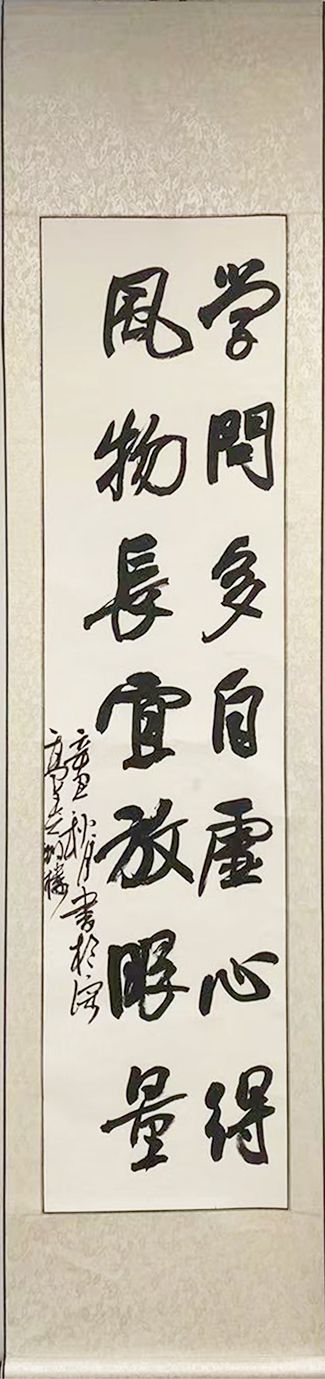 学問多自虛心得
風物長宜放眼量
秋月書於深